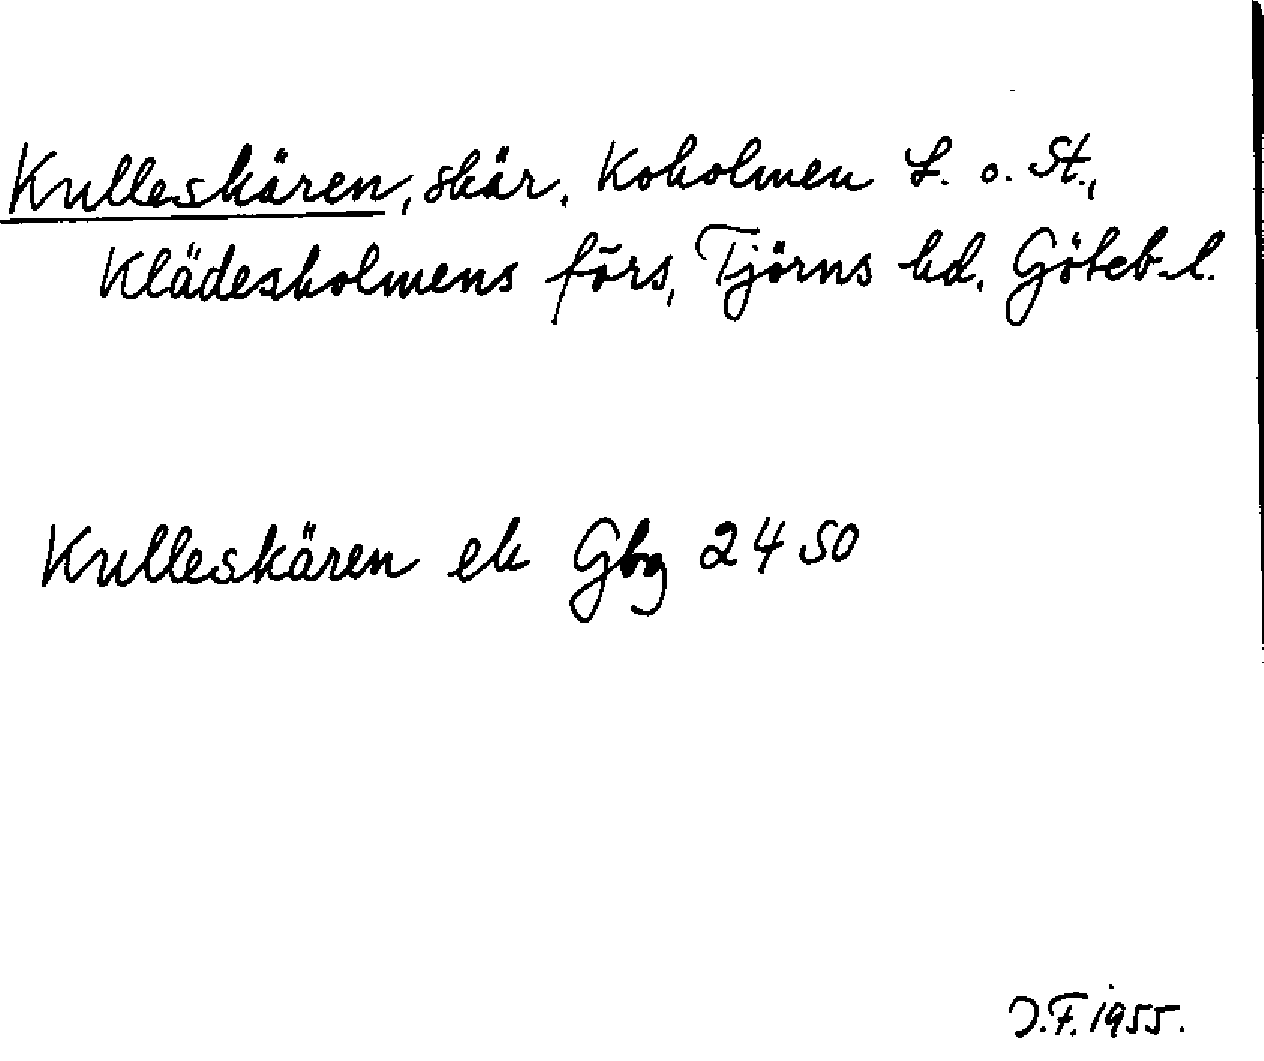 Kulleskären, skär. Koholmen L. o. St.,
Klädesholmens förs, Tjörns hd. Göteb. l.
Kulleskären ek Gbg 2450
J.F. 1955.